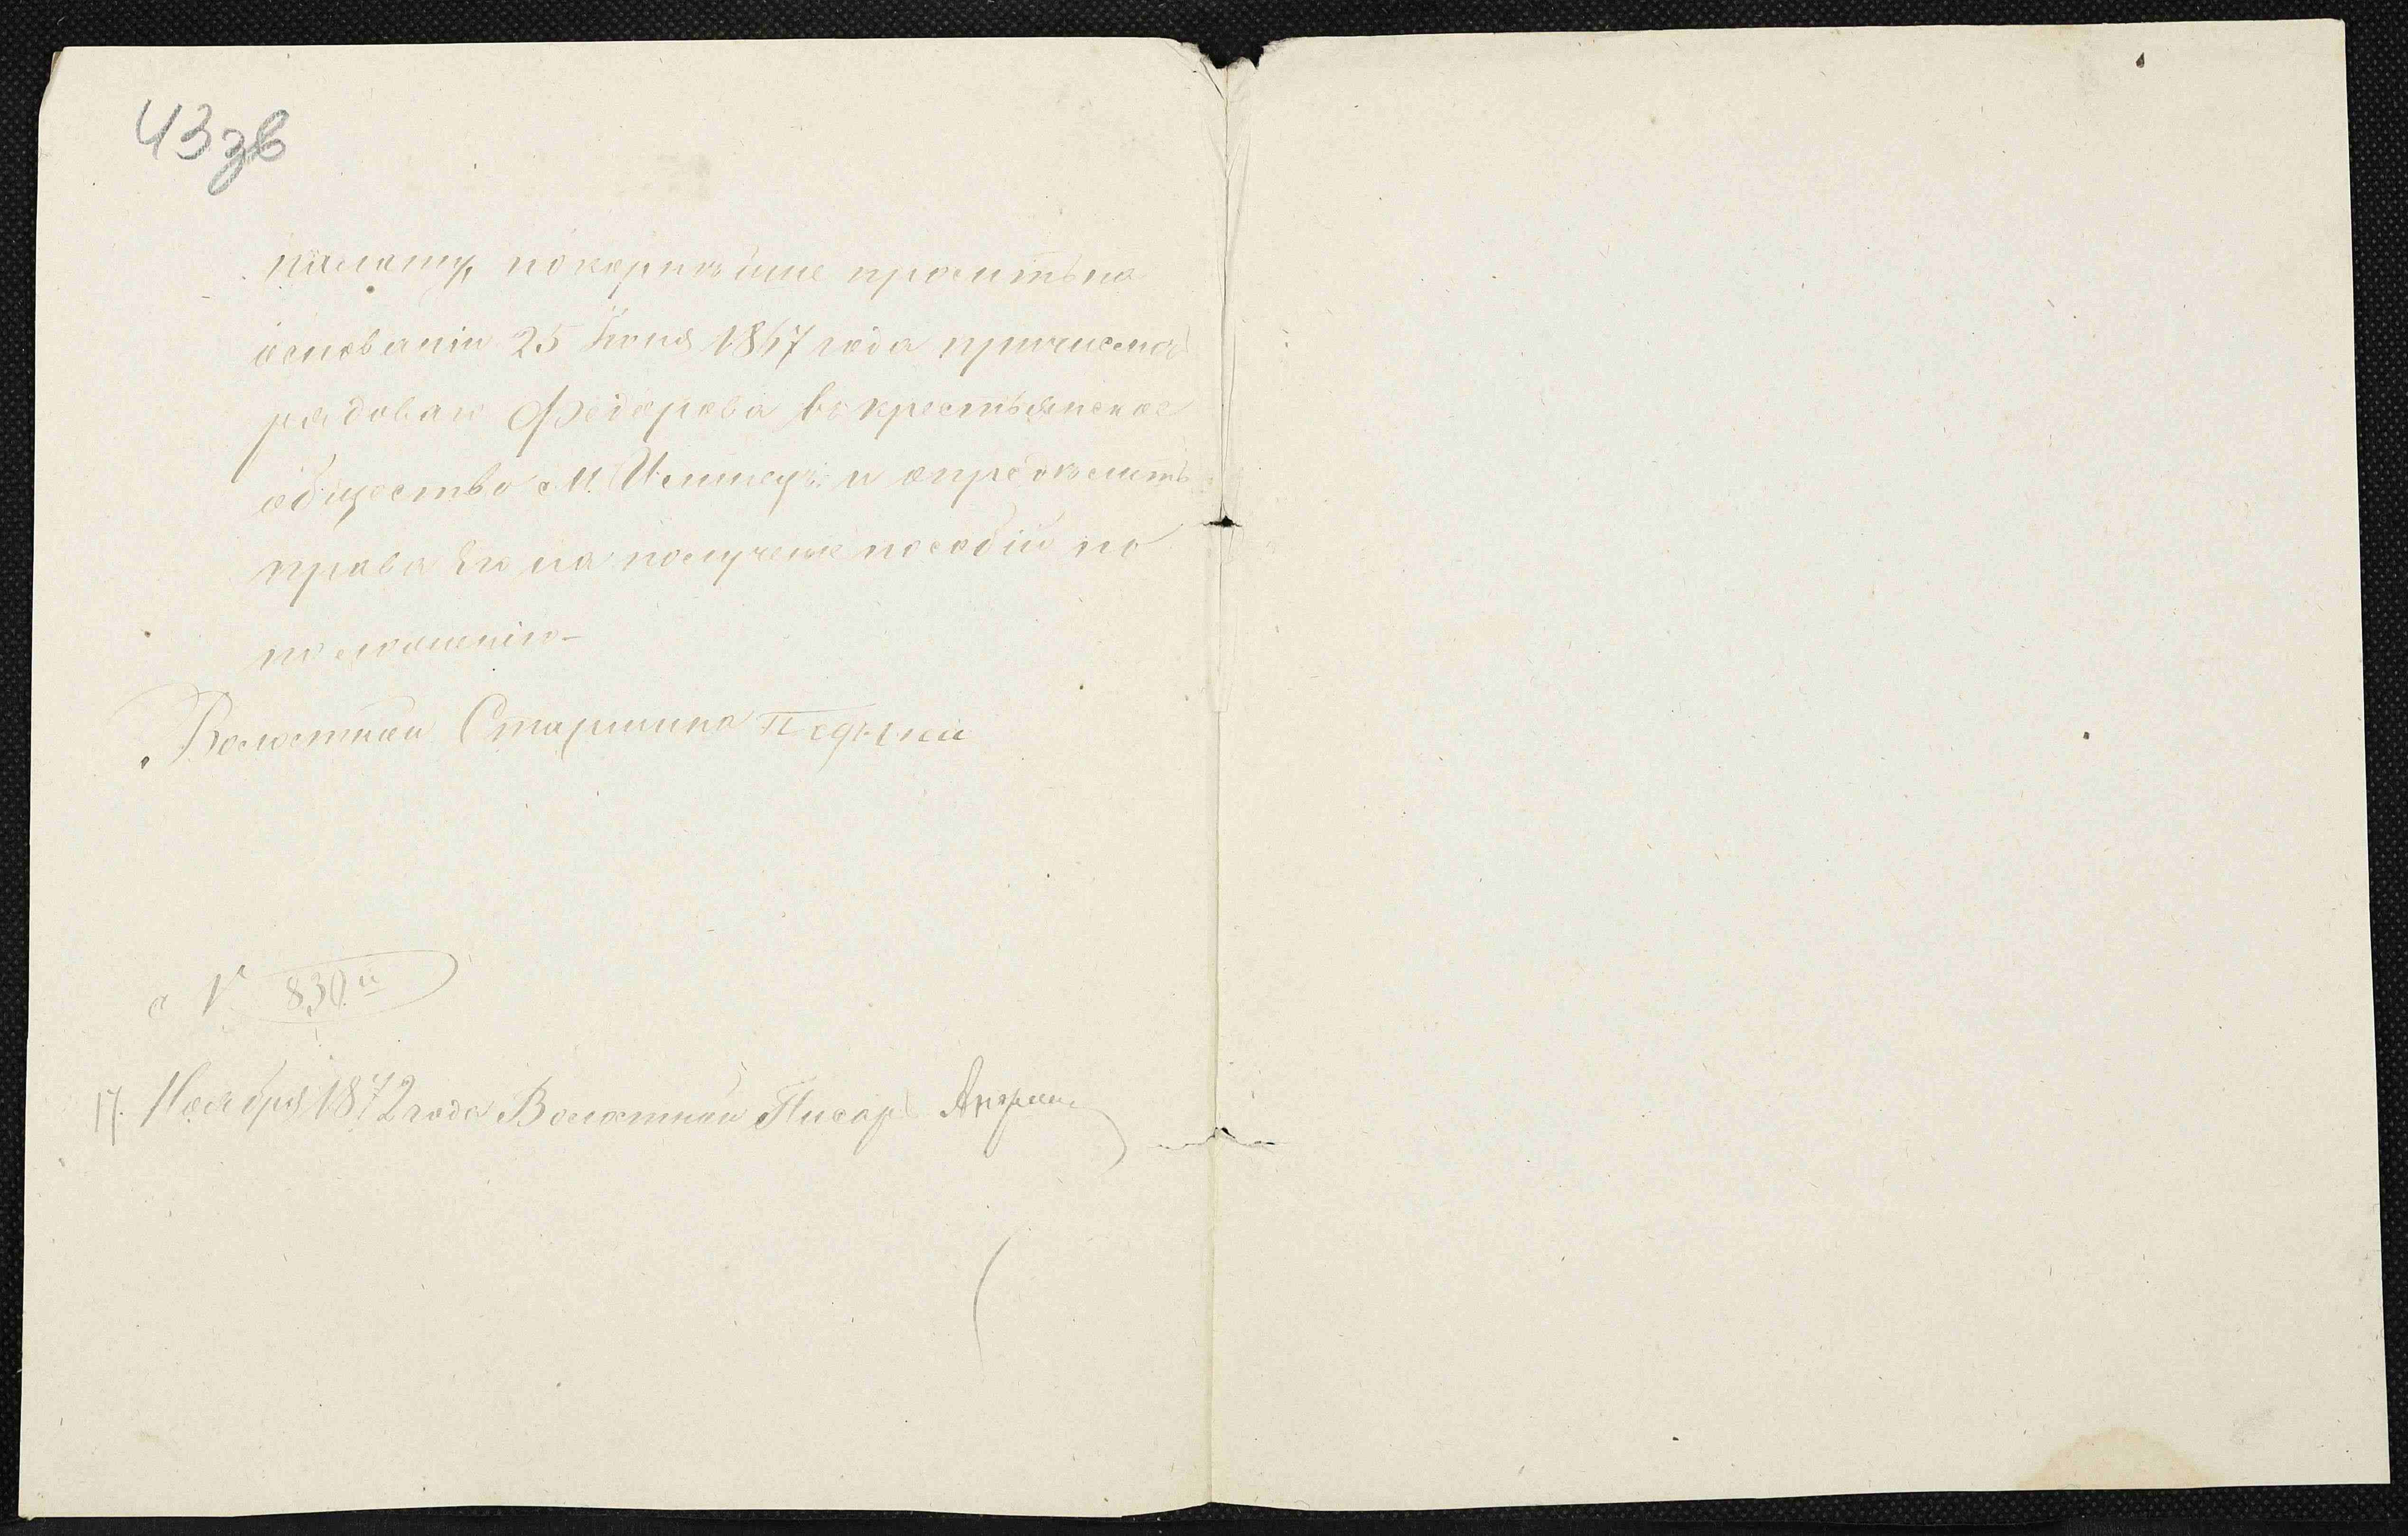 43 зв
палату, покорнѣйше просить на
основаніи 25 Іюня 1867 года причислить
рядоваго Федорова въ крестьянское
общество м. и опредѣлить
права Его на полученіе пособій по
положенію–
Волостной Старшина
№ 830й
17. Ноября 1872 года Волостной Писарь